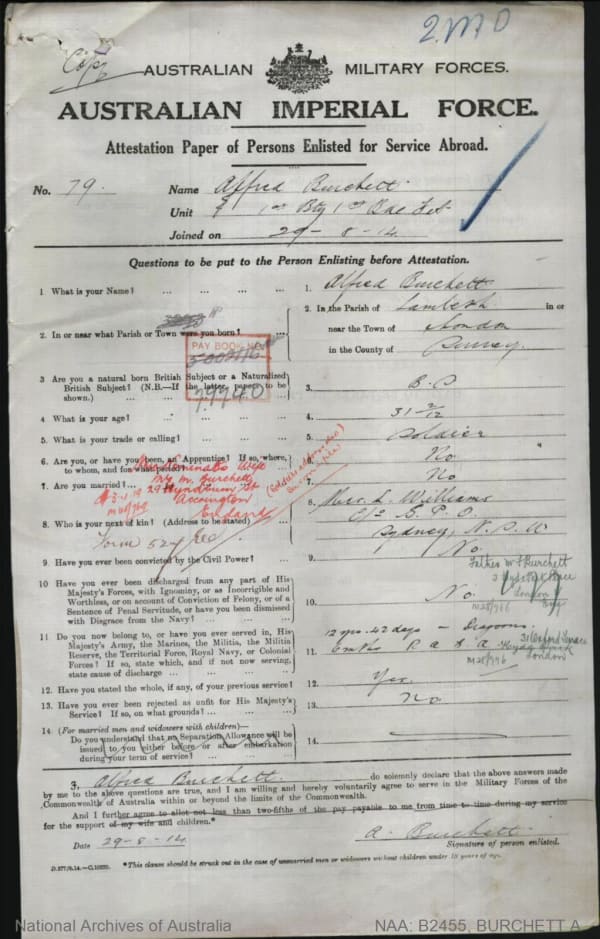 2.M D
Copy
AUSTRALIAN MILITARY FORCES.
AUSTRALIAN IMPERIAL FORCE.
Attestation Paper of Persons Enlisted for Service Abroad.
No. 79. Name Alfred Burchett.
Unit 1st Bty 1st
Joined on 29-8-14
Questions to be put to the Person Enlisting before Attestation.
1 What is your Name? ... ... ... ... 1. Alfred Burchett
2. In or near what Parish or Town were you born? ... 2. In the Parish of Lambeth in or
near the Town of London
in the County of Surrey.
PAY BOOK No.
79740
3 Are you a natural born British Subject or a Naturalized
British Subject? (N.B.—If the latter, papers to be
shown.) ... ... ... ... 3. B.S
4. What is your age? ... ... ... 4. 31 3/12
5. What is your trade or calling? ... ... ... 5. Soldier
6. Are you, or have you been, an Apprentice? If so, where,
to whom, and for what period? 6. No
7. Are you married? ... ... ... 7. No
Wife
M. Burchett
29 St
Accrington
England
8. Who is your next of kin? (Address to be stated) 8. L. Williams
c/o G.P.O.
Sydney, N.S.W
Form 527
9. Have you ever been convicted by the Civil Power? ... 9. No
Father Burchett
London
Eng
10 Have you ever been discharged from any part of His
Majesty's Forces, with Ignominy, or as Incorrigible and
Worthless, or on account of Conviction of Felony, or of a
Sentence of Penal Servitude, or have you been dismissed
with Disgrace from the Navy? ... ... ... 10. No.
11 Do you now belong to, or have you ever served in, His
Majesty's Army, the Marines, the Militia, the Militia
Reserve, the Territorial Force, Royal Navy, or Colonial
Forces? If so, state which, and if not now serving,
state cause of discharge ... ... ... 11. 12 yrs. 42 days — Dragoons.
R A G A
London
12. Have you stated the whole, if any, of your previous service? 12. Yes.
13. Have you ever been rejected as unfit for His Majesty's
Service? If so, on what grounds? ... ... ... 13. No
14 (For married men and widowers with children)—
Do you understand that no Separation Allowance will be
issued to you either before or after embarkation
during your term of service? ... ... ... 14.
I, Alfred Burchett. do solemnly declare that the above answers made
by me to the above questions are true, and I am willing and hereby voluntarily agree to serve in the Military Forces of the
Commonwealth of Australia within or beyond the limits of the Commonwealth.
And I further agree to allot not less than two-fifths of the pay payable to me from time to time during my service
for the support of my wife and children.*
Date 29-8-14 A. Burchett.
Signature of person enlisted.
*This clause should be struck out in the case of unmarried men or widowers without children under 18 years of age.
National Archives of Australia NAA: B2455, BURCHETT A